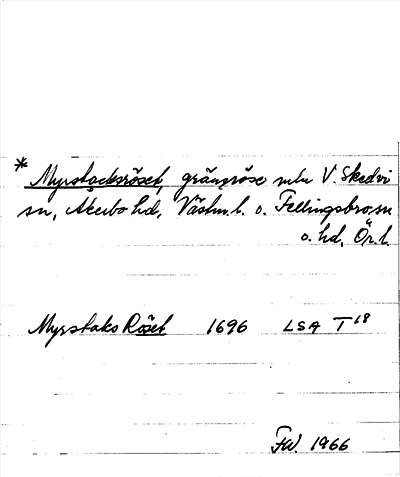 * Myrstacksröset, gränsröse mln V. Skedvi
sn, Åkerbo hd, Västm. l. o. Fellingsbro sn
o. hd, Ör. l.
Myrstaks Röset 1696 LSA T 18
FW. 1966